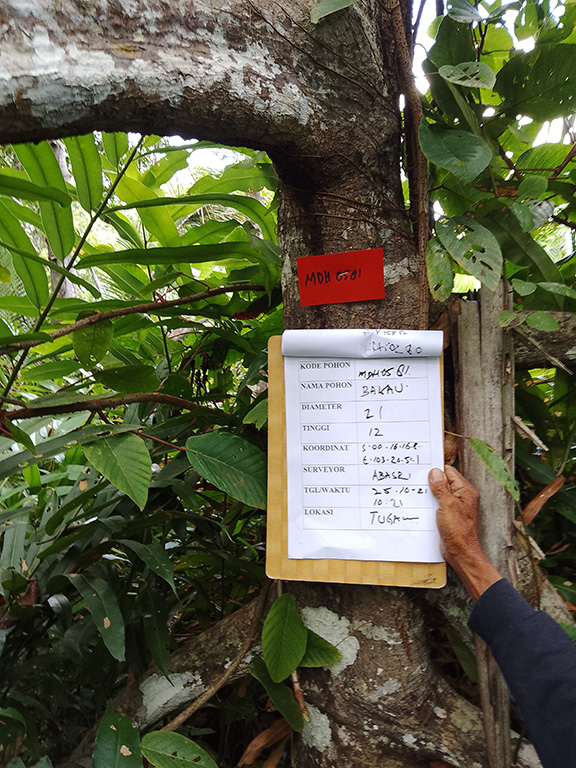 MDH 0581
KODE POHON MDH 05 81.
NAMA POHON BAKAU.
DIAMETER 21
TINGGI 12
KOORDINAT S.00.16.168.
E.103.20.51.1
SURVEYOR
TGL/WAKTU 25.10-21
10.21
LOKASI